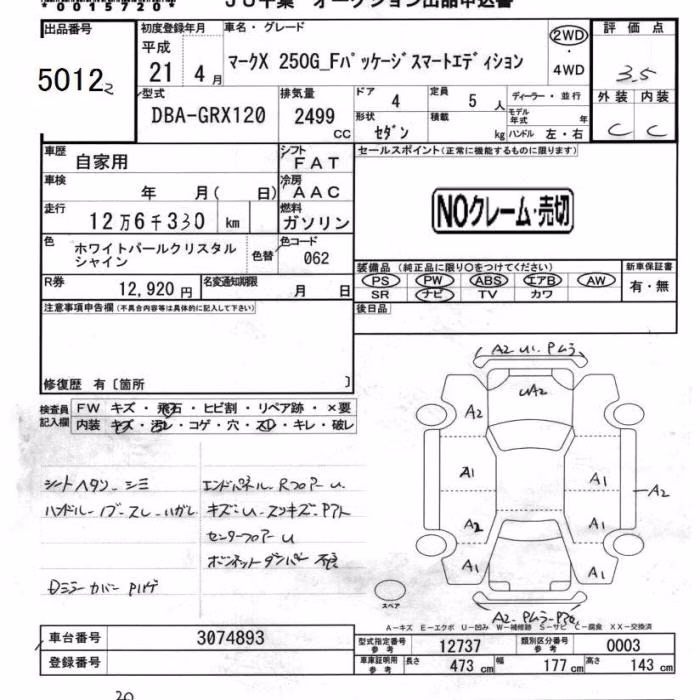 *0015720*
JU千葉 オークション出品申込書
出品番号
5012
初度登録年月
平成
21 4月
車名・グレード
マークX 250G_Fパッケージスマートエディション
2WD
・
4WD
評価点
3.5
外装 内装
C C
型式
DBA-GRX120
排気量
2499
CC
ドア 4
定員 5 人
ディーラー・並行
形状 セダン
積載 kg
モデル年式 年
ハンドル 左・右
車歴 自家用
シフト FAT
セールスポイント(正常に機能するものに限ります)
車検 年 月( 日)
冷房 AAC
NOクレーム・売切
走行 12万6千330 km
燃料 ガソリン
色 ホワイトパールクリスタル
シャイン
色替
色コード 062
装備品(純正品に限り○をつけてください)
新車保証書
PS PW ABS エアB AW
SR ナビ TV カワ
有・無
R券 12,920円
名変通知期限 月 日
後日品
注意事項申告欄(不具合内容等は具体的に記入して下さい)
修復歴 有〔箇所 〕
検査員
記入欄
FW キズ・飛石・ヒビ割・リペア跡・×要
内装 キズ・汚レ・コゲ・穴・スレ・キレ・破レ
シートヘタリ シミ
ハンドル ノブ スレ ハガレ
Dミラーカバー Pハゲ
エンドパネル Rフロアー U
キズ U スンキズ Pアト
センターフロアー U
ボンネットダンパー 不良
A2 U1 Pムラ
UA2
A2
A1 A1 A2
A2 A1
A1 A1
A2 Pムラ
スペア
A-キズ E-エクボ U-凹み W-補修跡 S-サビ C-腐食 XX-交換済
車台番号 3074893
登録番号
型式指定番号 参考 12737
類別区分番号 参考 0003
車庫証明用 参考 長さ 473 cm 幅 177 cm 高さ 143 cm